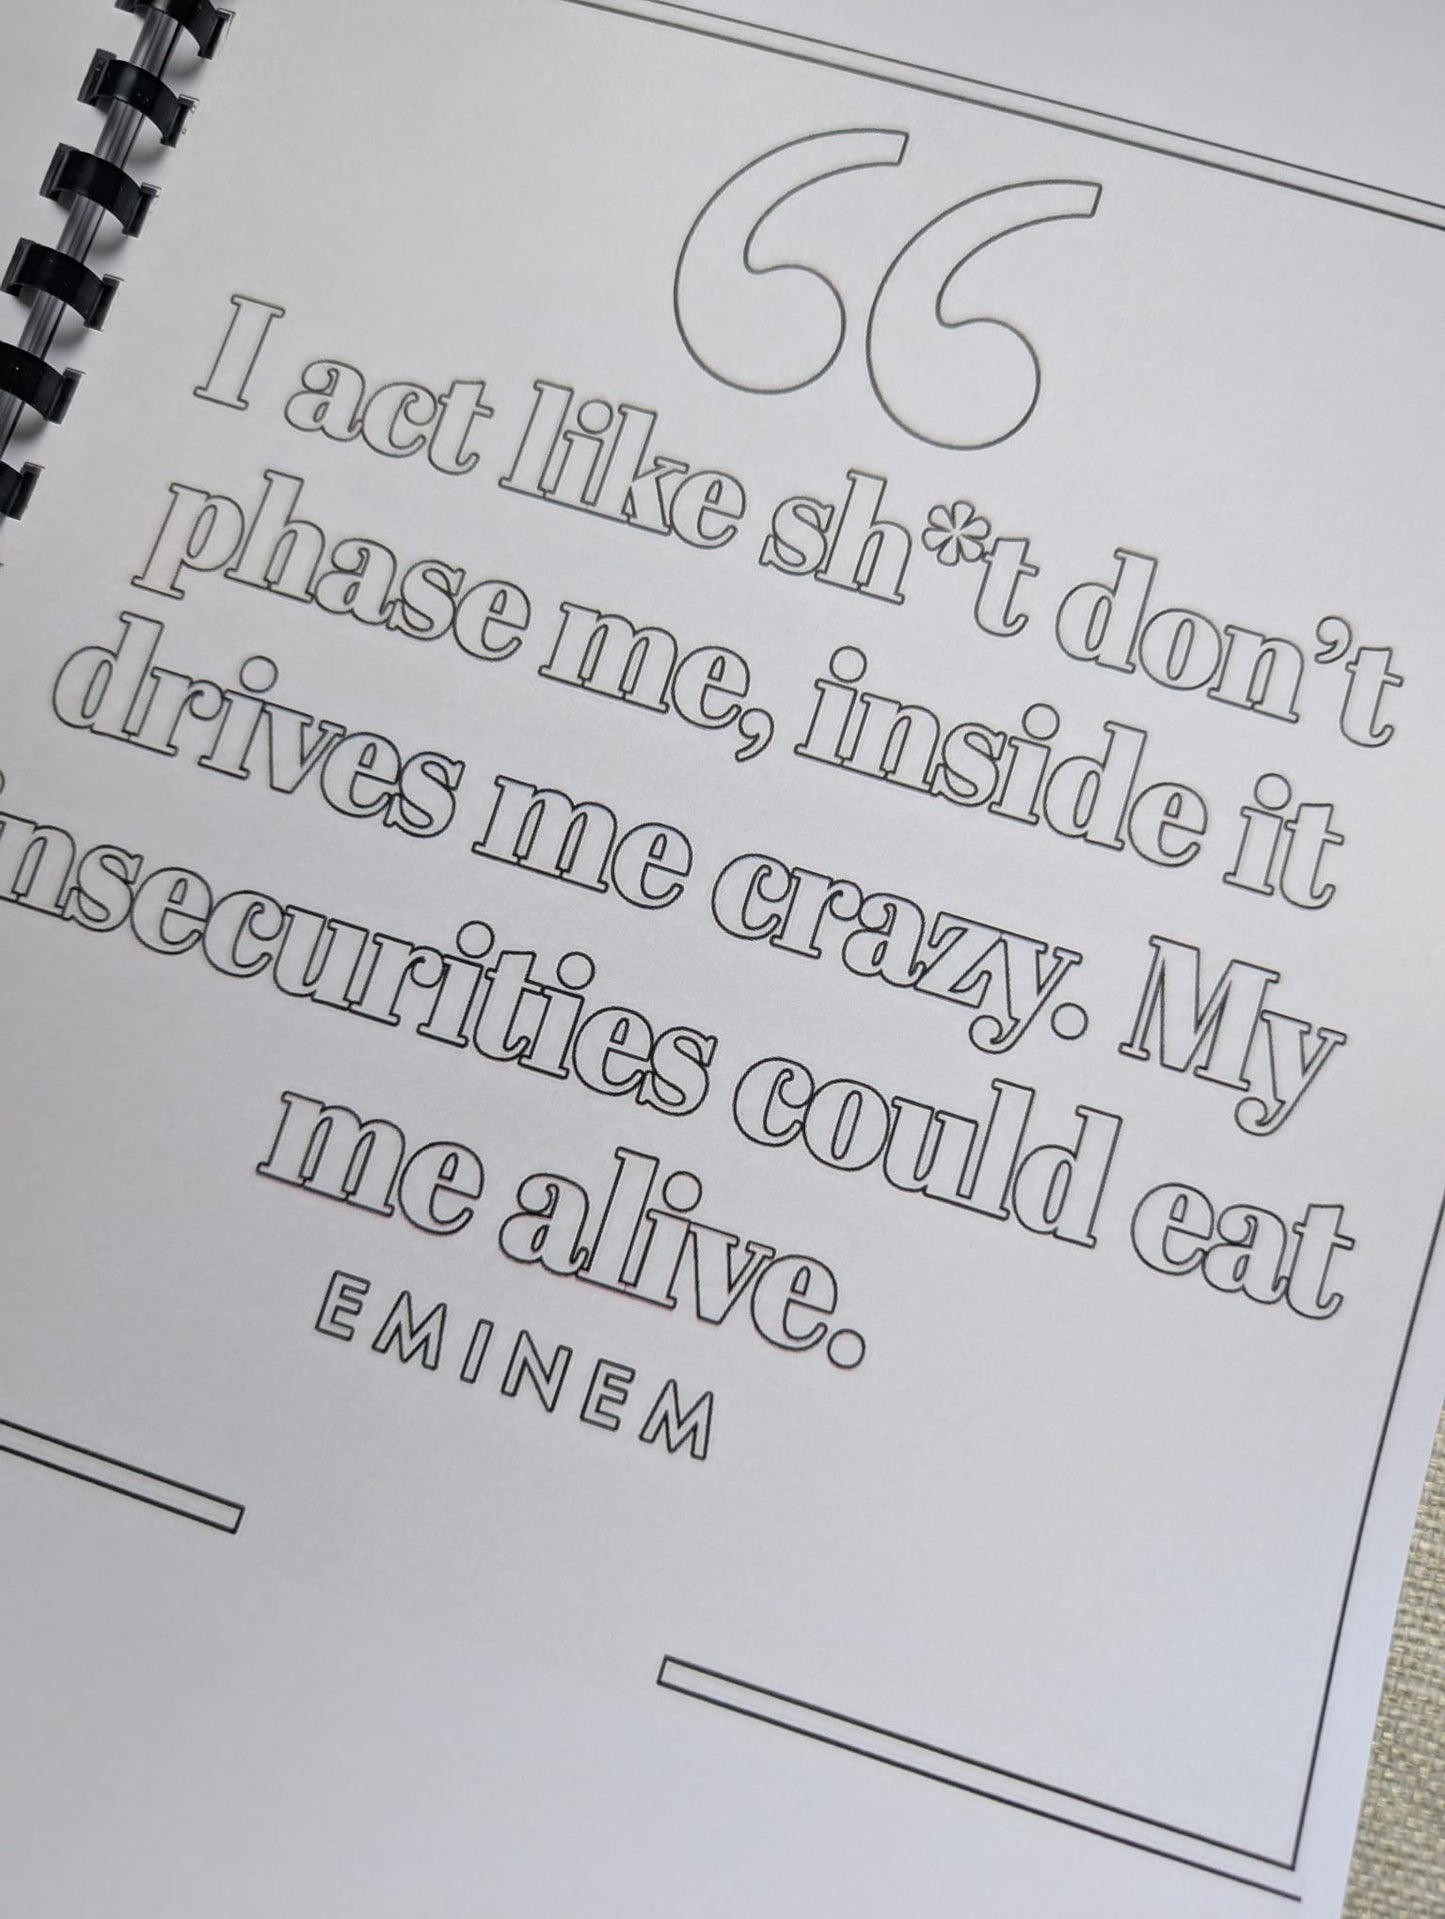 I act like sh*t don't
phase me, inside it
drives me crazy. My
insecurities could eat
me alive.
EMINEM